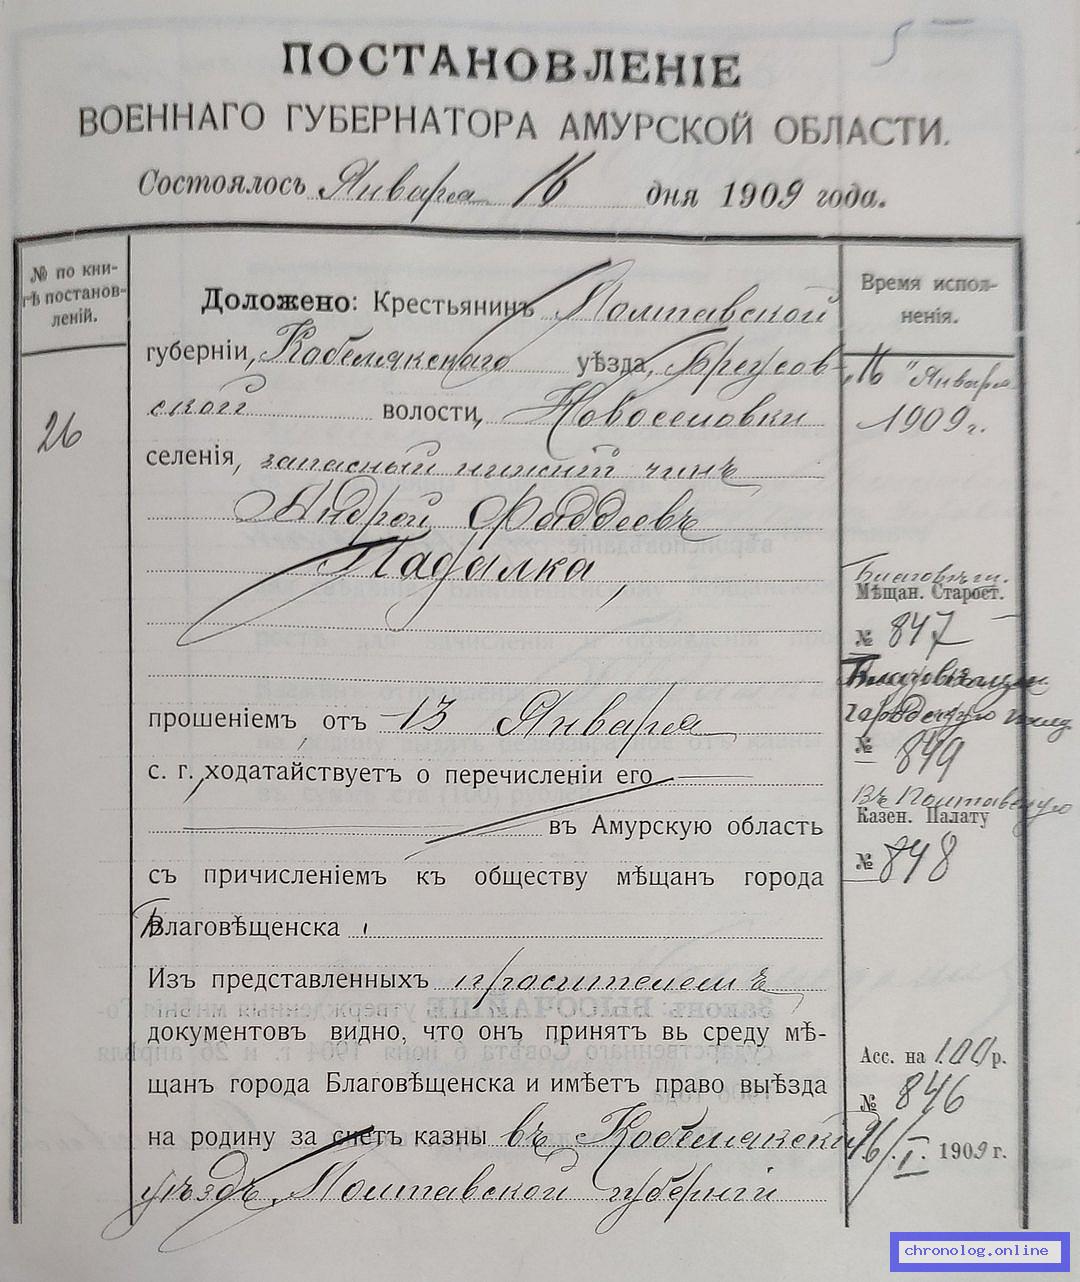 ПОСТАНОВЛЕНІЕ
ВОЕННАГО ГУБЕРНАТОРА АМУРСКОЙ ОБЛАСТИ.
Состоялось Января 16 дня 1909 года.
№ по кни-
гѣ постанов-
леній.
26
Доложено: Крестьянинъ Полтавской
губерніи, Кобелякскаго уѣзда, Бреусов-
ской волости, Новоселовки
селенія, запасный нижній чинъ
Андрей Фаддеевъ
Падалка,
прошеніемъ отъ 13 Января
с. г., ходатайствуетъ о перечисленіи его
въ Амурскую область
съ причисленіемъ къ обществу мѣщанъ города
Благовѣщенска
Изъ представленныхъ просителемъ
документовъ видно, что онъ принятъ вь среду мѣ-
щанъ города Благовѣщенска и имѣетъ право выѣзда
на родину за счетъ казны въ Кобелякскій
уѣздъ, Полтавской губерніи
Время испол-
ненія.
„16" Января
1909 г.
Благовѣщ.
Мѣщан. Старост.
№ 847
Благовѣщен
городскую
№ 849
Въ Полтавскую
Казен. Палату
№ 848
Асс. на 100 р.
№ 846
16/I 1909 г.
chronolog.online